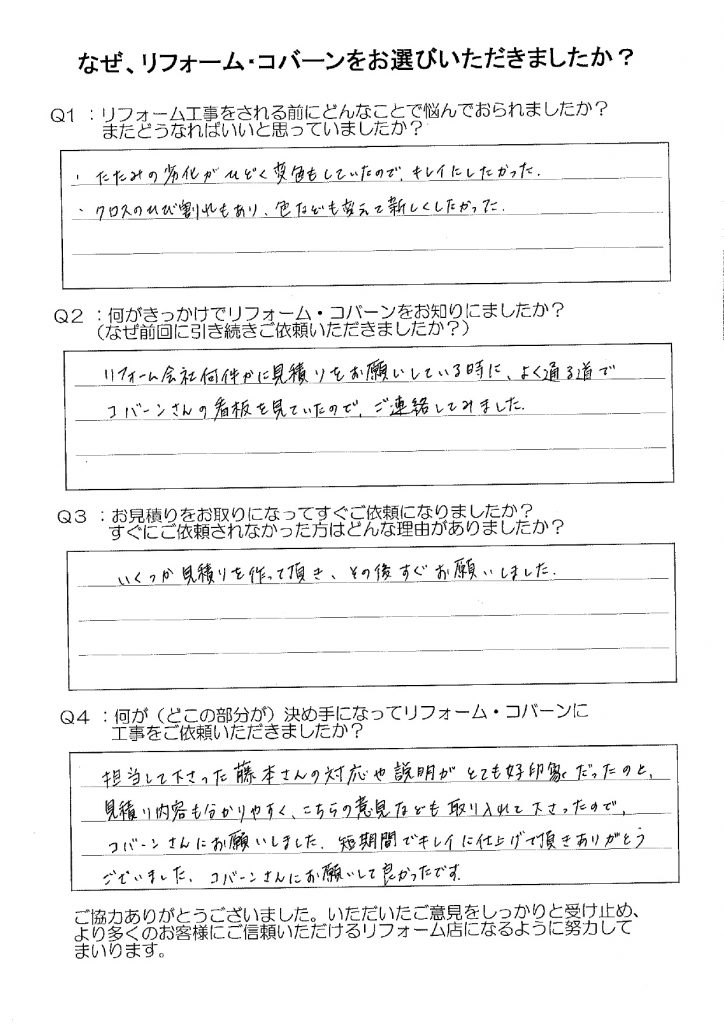 なぜ、リフォーム・コバーンをお選びいただきましたか？
Q1 ：リフォーム工事をされる前にどんなことで悩んでおられましたか？
またどうなればいいと思っていましたか？
・ たたみの劣化がひどく変色もしていたので、キレイにしたかった.
・ クロスのひび割れもあり、色なども変えて新しくしたかった.
Q2 ：何がきっかけでリフォーム・コバーンをお知りにましたか？
（なぜ前回に引き続きご依頼いただきましたか？）
リフォーム会社何件かに見積りをお願いしている時に、よく通る道で
コバーンさんの看板を見ていたので、ご連絡してみました.
Q3 ：お見積りをお取りになってすぐご依頼になりましたか？
すぐにご依頼されなかった方はどんな理由がありましたか？
いくつか見積りを作って頂き、その後すぐお願いしました.
Q4 ：何が（どこの部分が）決め手になってリフォーム・コバーンに
工事をご依頼いただきましたか？
担当して下さった藤本さんの対応や説明がとても好印象だったのと、
見積り内容も分かりやすく、こちらの意見なども取り入れて下さったので、
コバーンさんにお願いしました. 短期間でキレイに仕上げて頂きありがとう
ございました. コバーンさんにお願いして良かったです.
ご協力ありがとうございました。いただいたご意見をしっかりと受け止め、
より多くのお客様にご信頼いただけるリフォーム店になるように努力して
まいります。